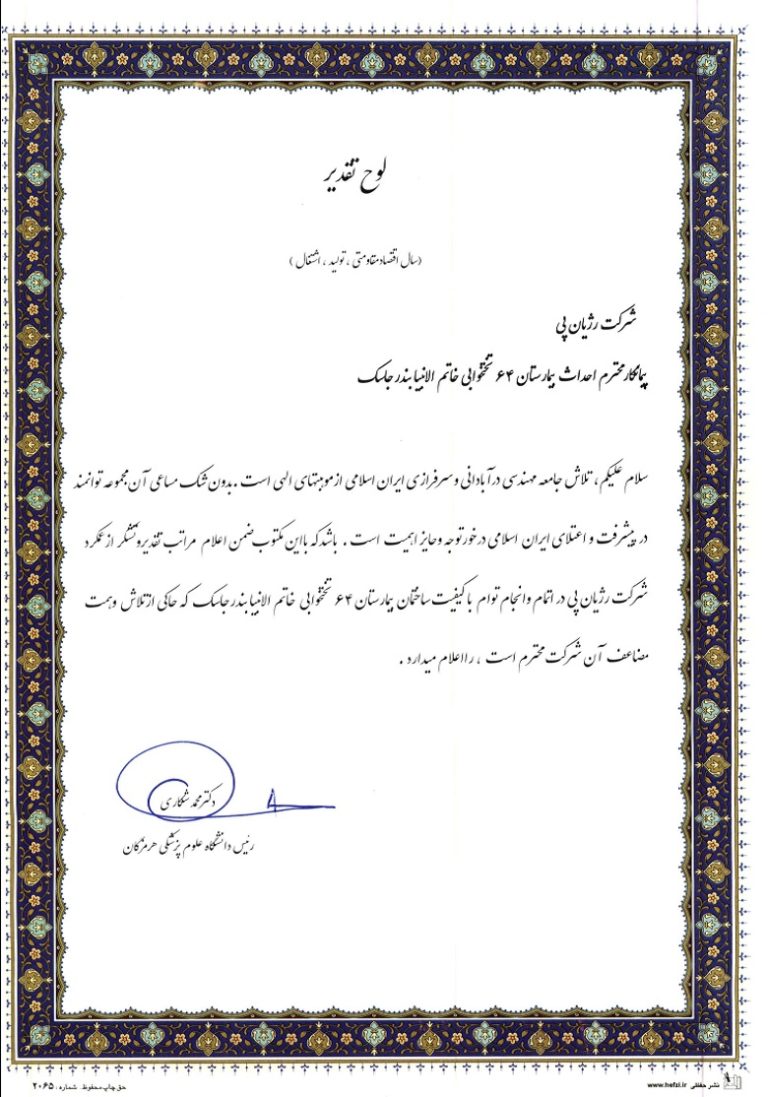 لوح تقدیر
(سال اقتصاد مقاومتی ، تولید ، اشتغال )
شرکت رژیان پی
پیمانکار محترم احداث بیمارستان ۶۴ تختخوابی خاتم الانبیا بندر جاسک
سلام علیکم ، تلاش جامعه مهندسی در آبادانی و سرفرازی ایران اسلامی از موهبتهای الهی است . بدون شک مساعی آن مجموعه توانمند
در پیشرفت و اعتلای ایران اسلامی در خور توجه و حایز اهمیت است . باشد که با این مکتوب ضمن اعلام مراتب تقدیر و تشکر از عملکرد
شرکت رژیان پی در اتمام و انجام توام با کیفیت ساختمان بیمارستان ۶۴ تختخوابی خاتم الانبیا بندر جاسک که حاکی از تلاش و همت
مضاعف آن شرکت محترم است ، را اعلام میدارد .
دکتر محمد شکاری
رئیس دانشگاه علوم پزشکی هرمزگان
نشر حفظی www.hefzi.ir
حق چاپ محفوظ . شماره : ۲۰۶۵